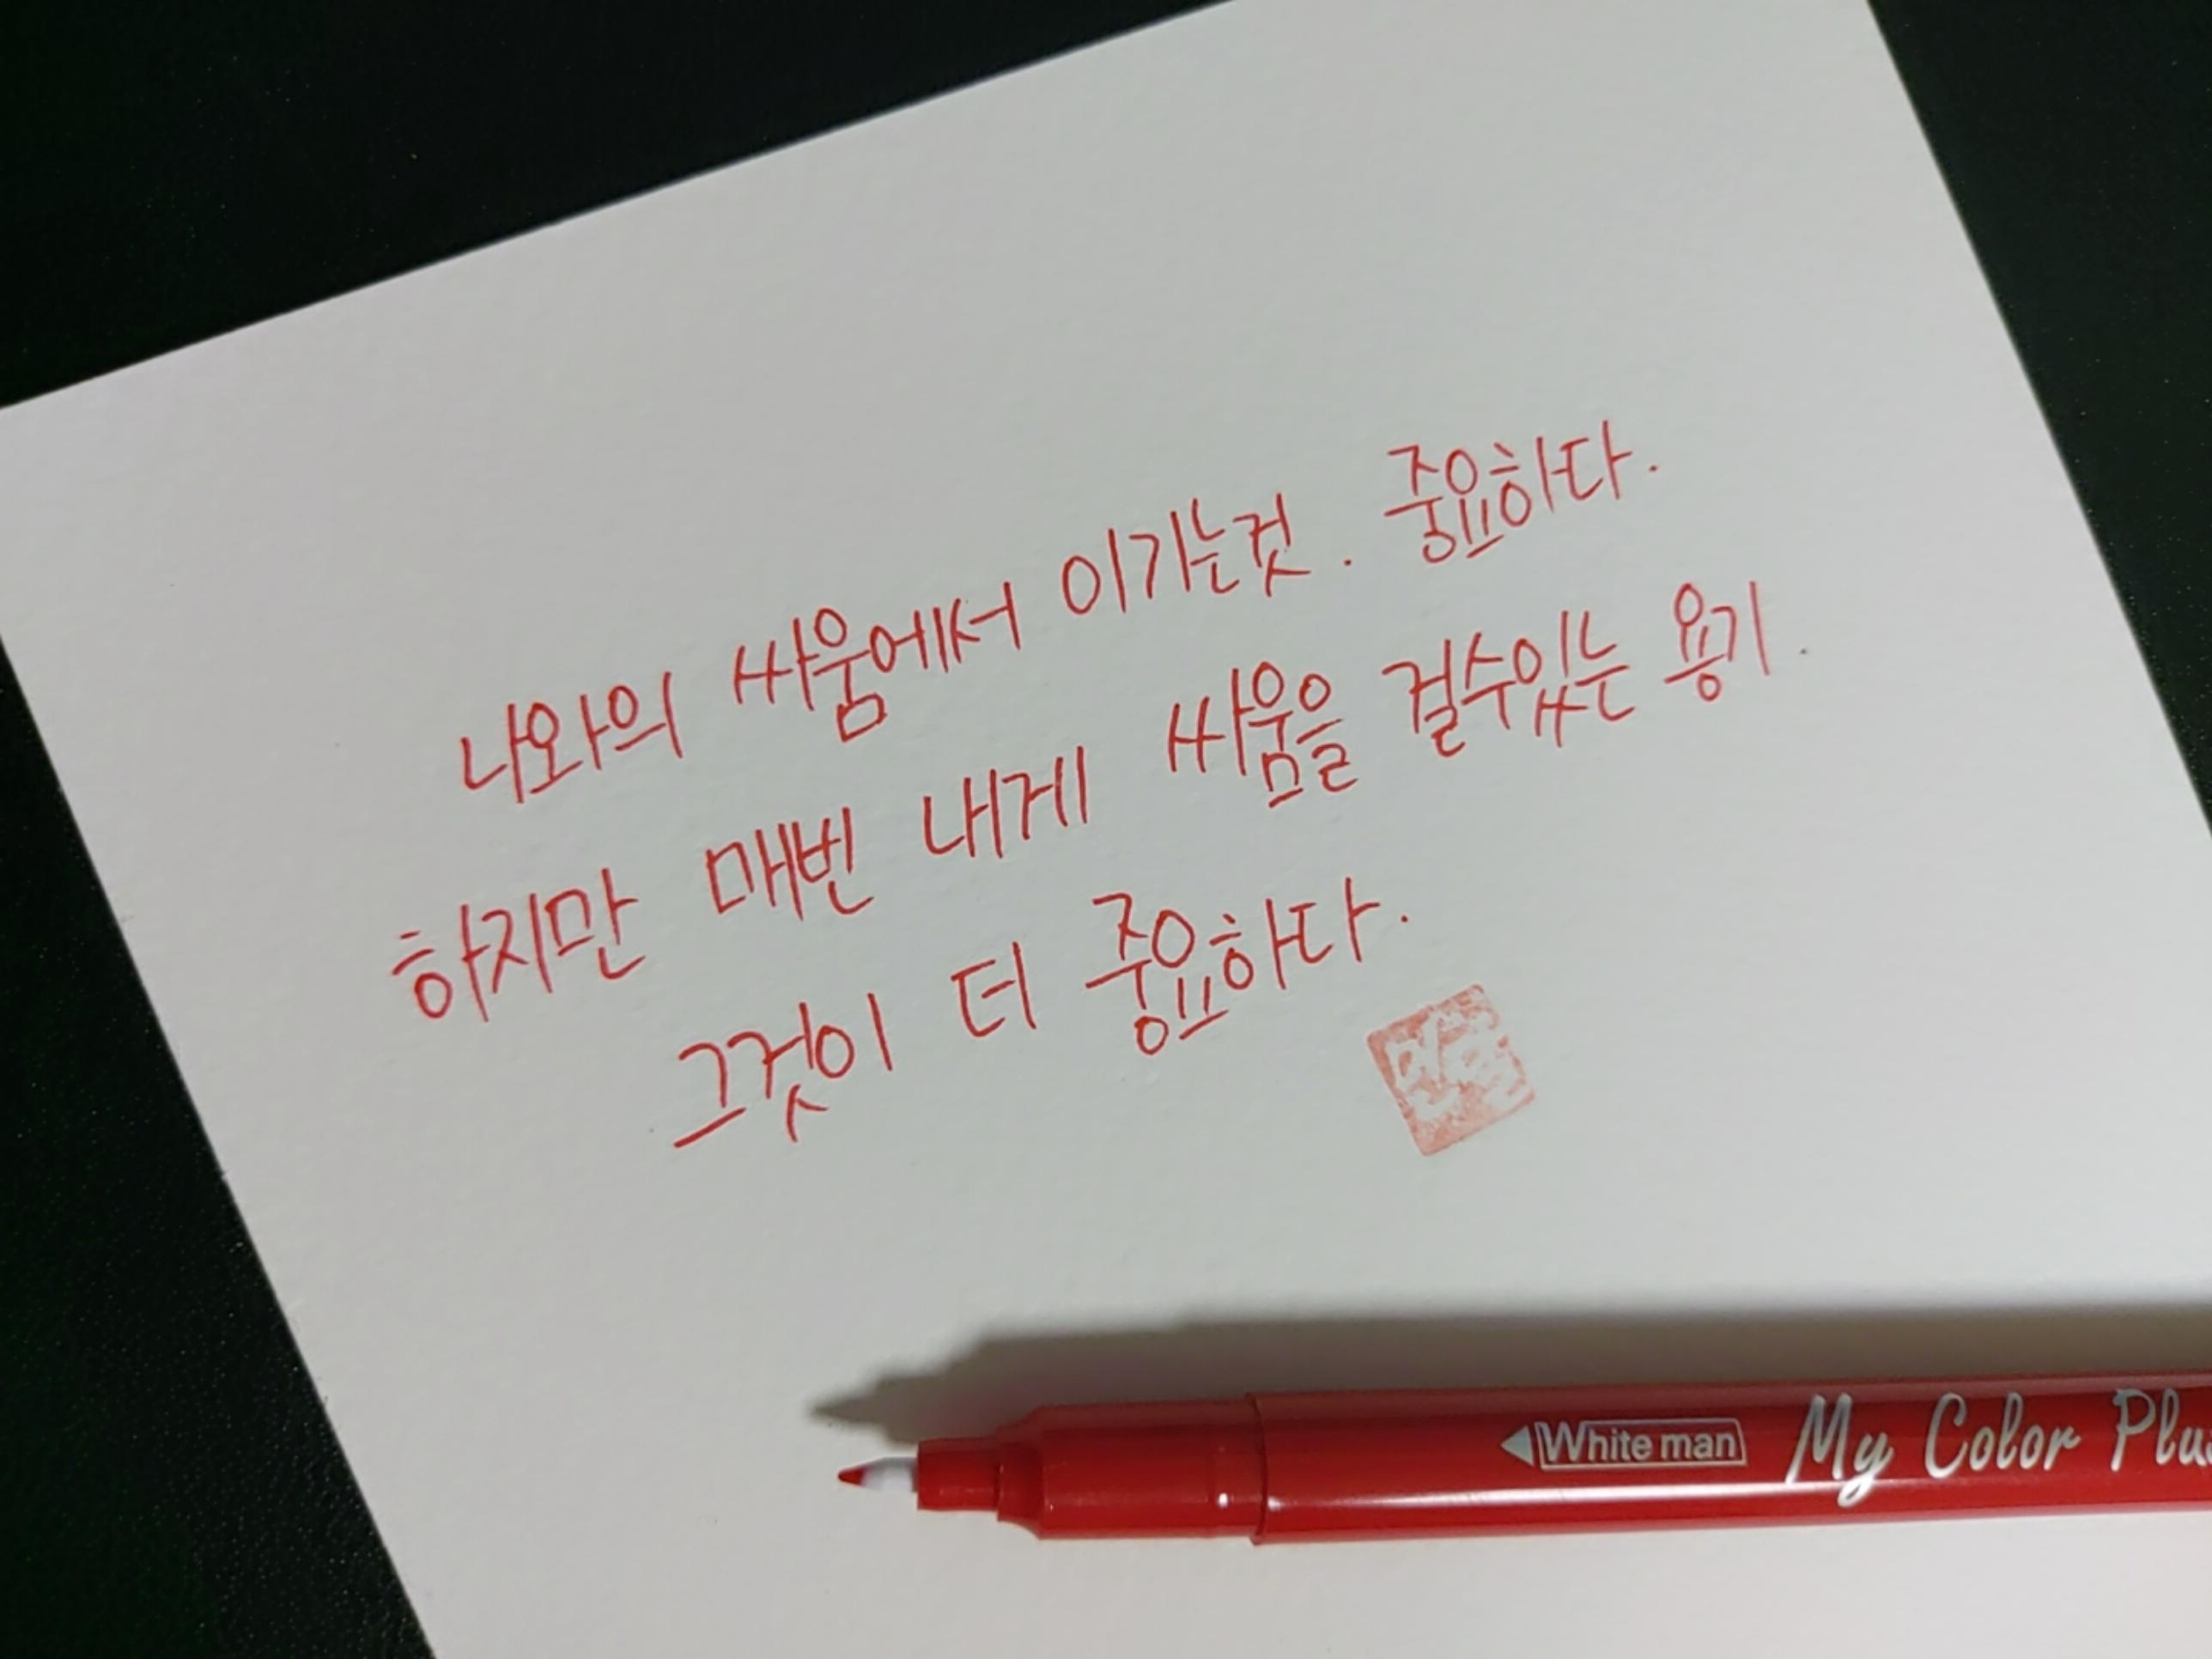 나와의 싸움에서 이기는것. 중요하다.
하지만 매번 내게 싸움을 걸수있는 용기.
그것이 더 중요하다.
White man My Color